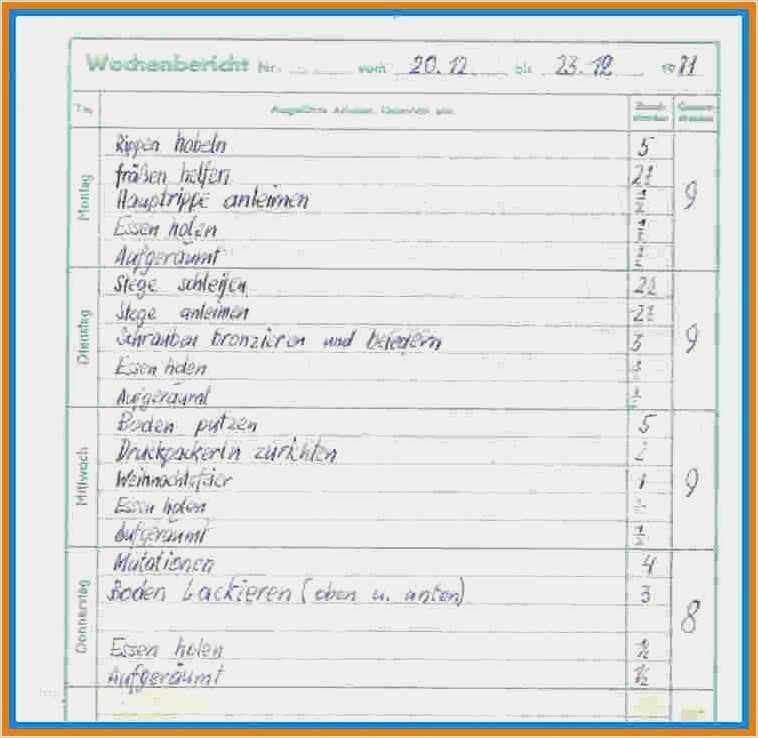 Wochenbericht Nr. vom 20.12 bis 23.12 1971
Tag Ausgeführte Arbeiten, Unterricht usw.
Montag
Rippen hobeln 5
fräßen helfen 2½
Hauptrippe anleimen ½
Essen holen ½
Aufgeräumt ½
9
Dienstag
Stege schleifen 2½
Stege anleimen 2½
Schrauben bronzieren und beledern 3
Essen holen ½
Aufgeräumt ½
9
Mittwoch
Boden putzen 5
zurichten 2
Weihnachtsfeier 1
Essen holen ½
Aufgeräumt ½
9
Donnerstag
Mutationen 4
Boden Lackieren (oben u. unten) 3
Essen holen ½
Aufgeräumt ½
8